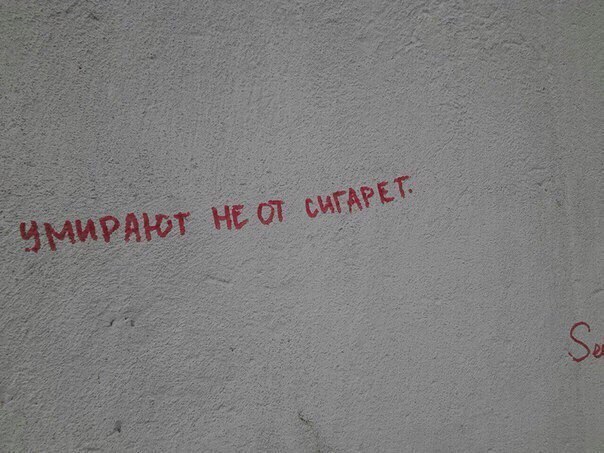 УМИРАЮТ НЕ ОТ СИГАРЕТ.